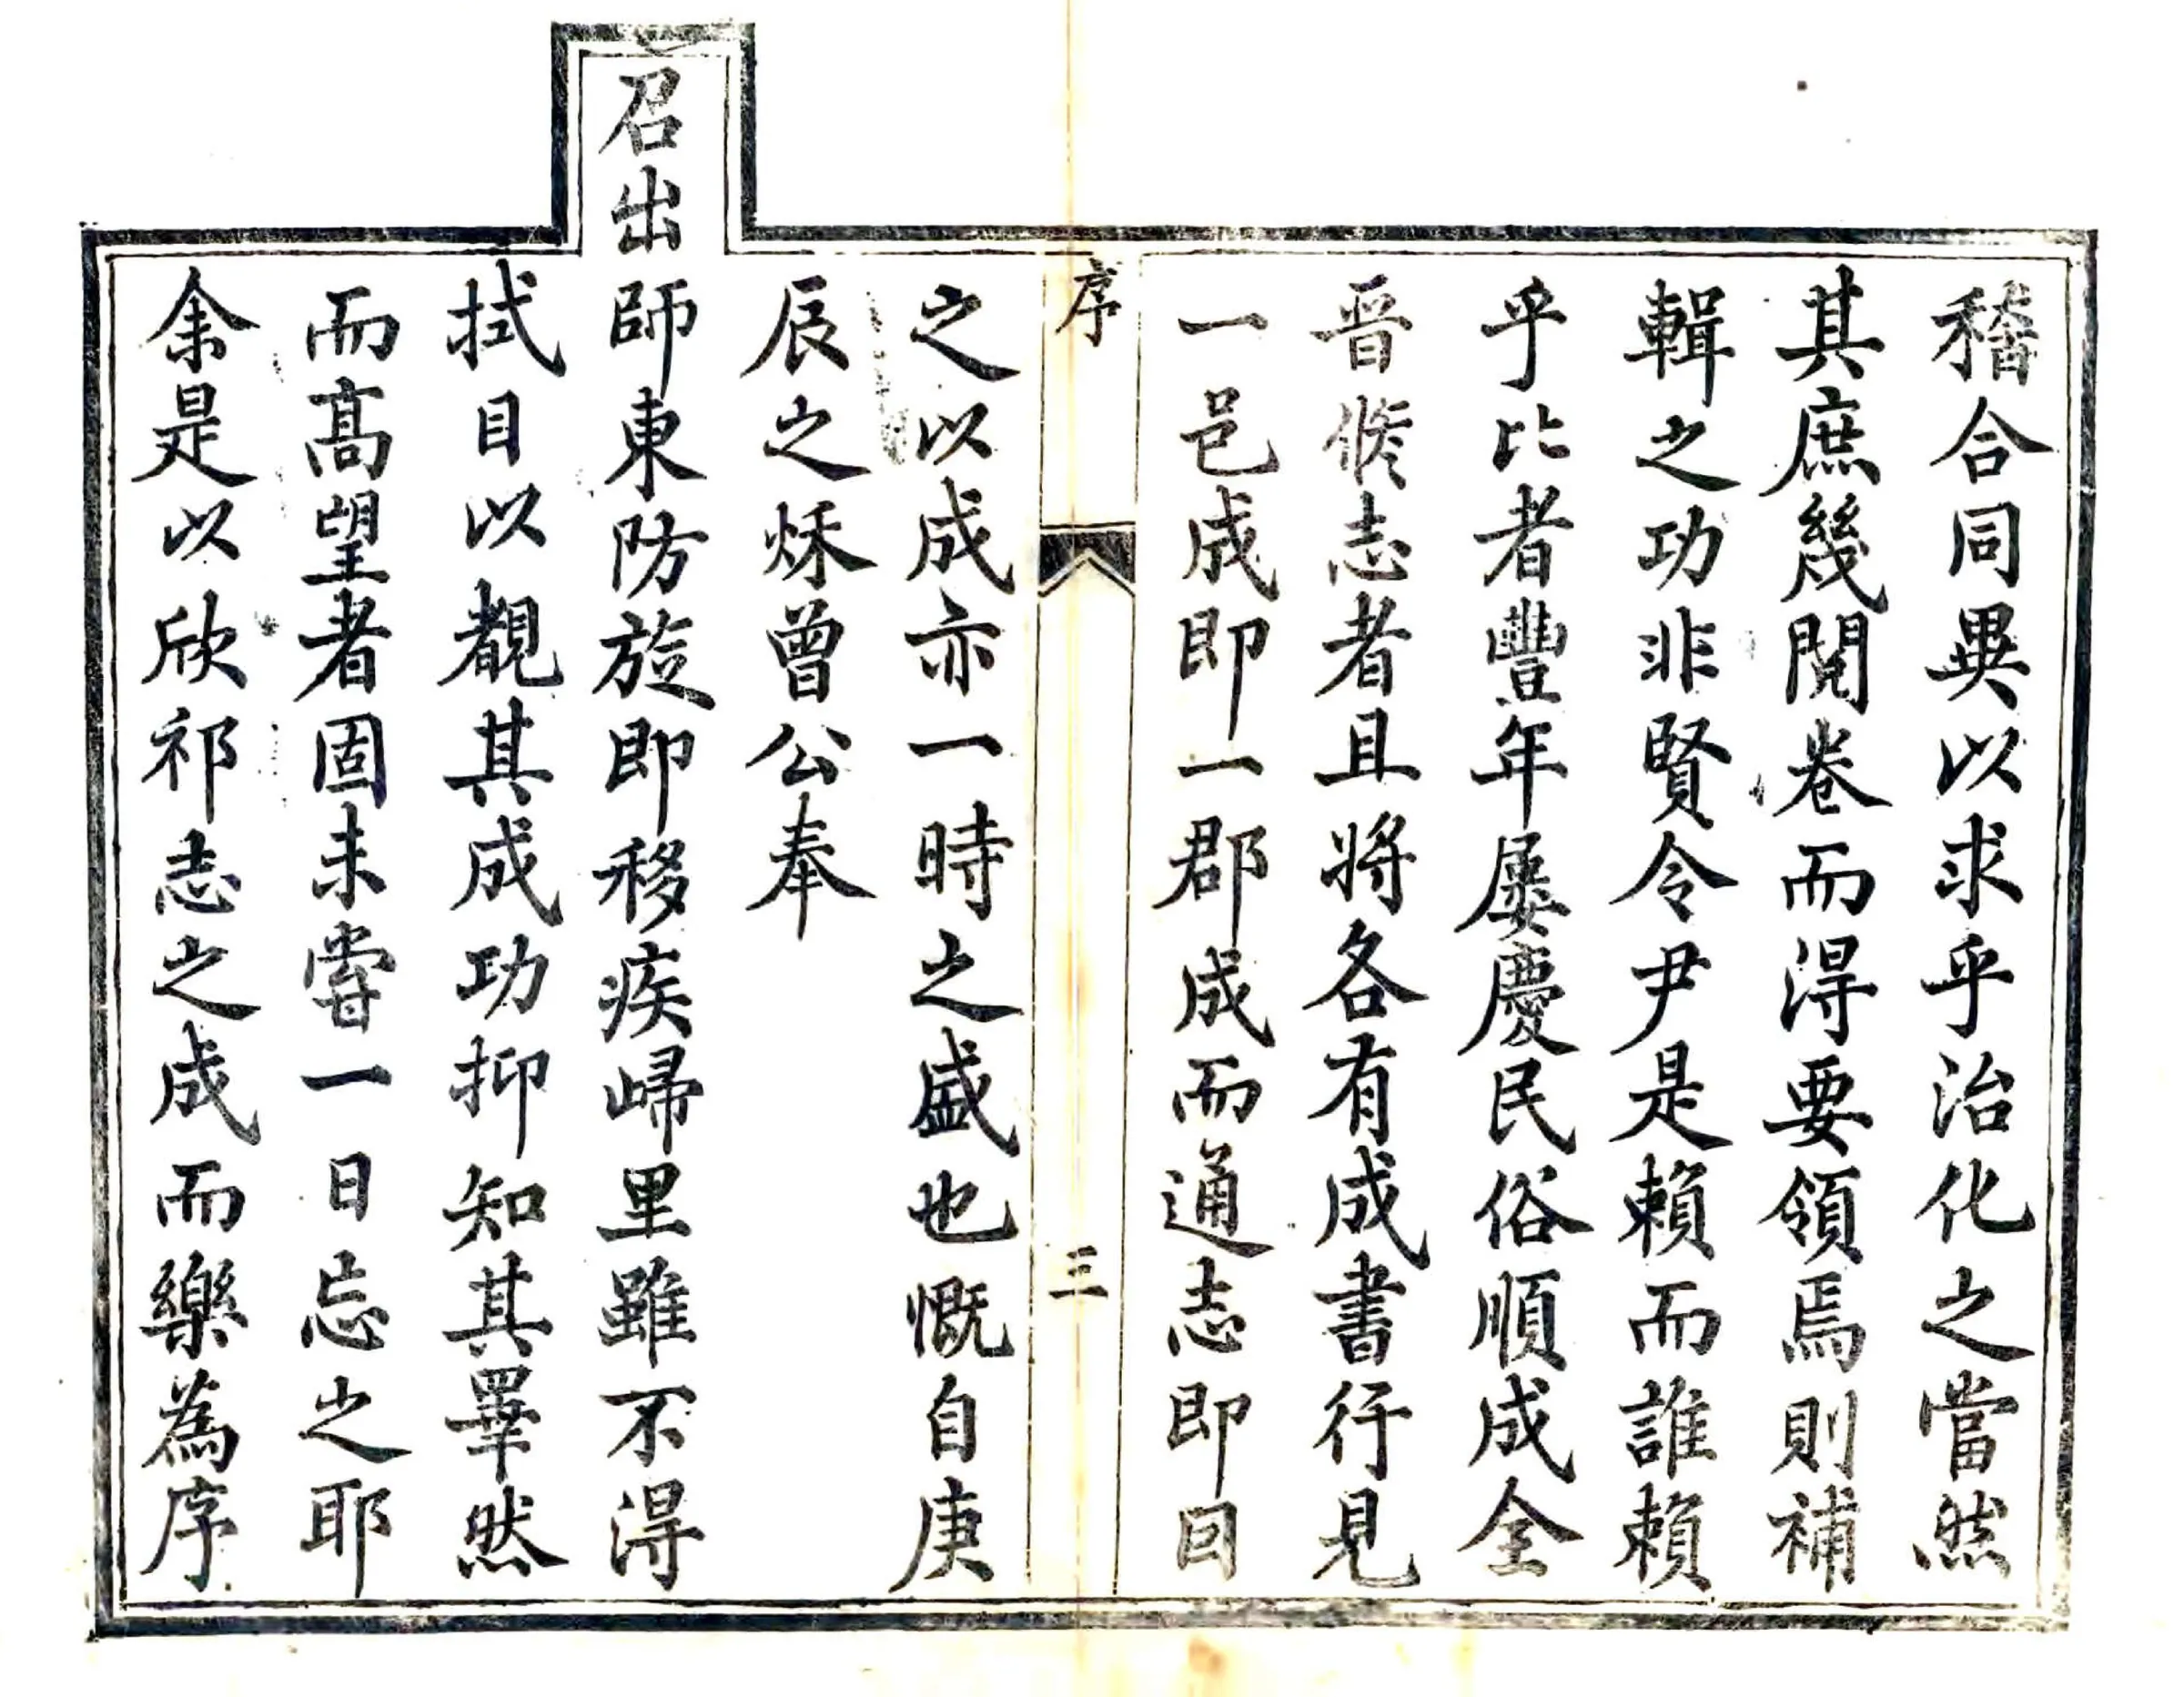 稽合同異以求乎治化之當然
其庶幾閱卷而得要領焉則補
輯之功非賢令尹是賴而誰賴
乎比者豐年屢慶民俗順成全
晉脩志者且將各有成書行見
一邑成即一郡成而通志即因
序
三
之以成亦一時之盛也慨自庚
辰之秌曾公奉
召出師東防旋即移疾歸里雖不得
拭目以覩其成功抑知其睾然
而髙望者固未嘗一日忘之耶
余是以欣祁志之成而樂為序